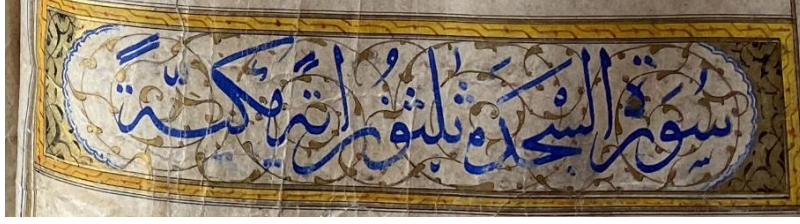 سُورَةُ السَّجْدَه ثَلٰثُونَ اٰيَةً مَكِّيَّةً